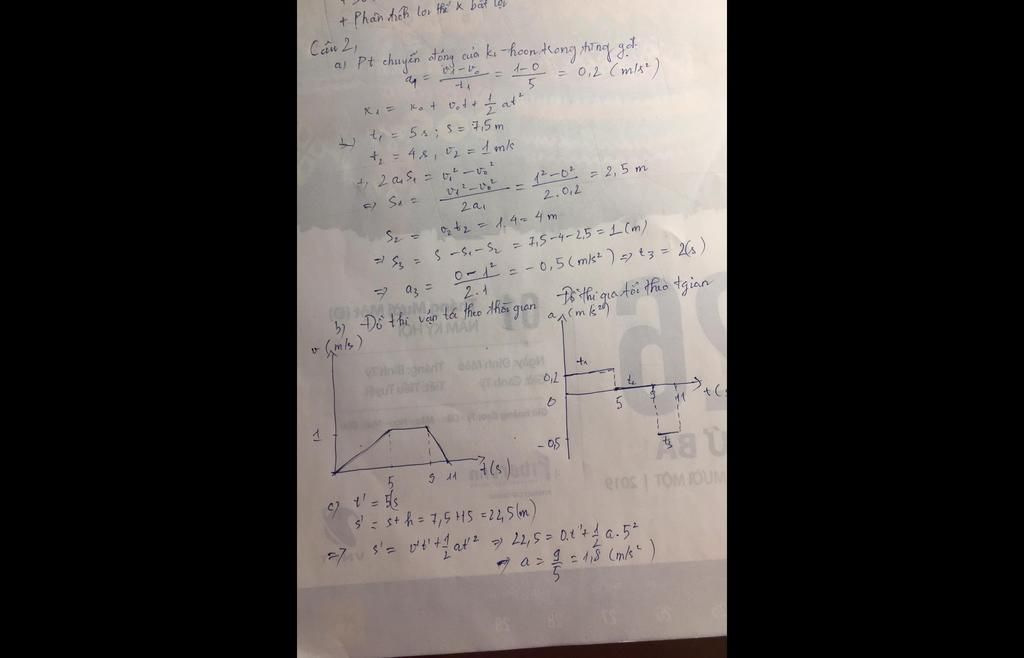 + Phân tích lợi thế x bất lợi
Câu 2,
a) Pt chuyển động của k₁-hoon trong từng gđ
a₁ = v₁-v₀/t₁ = 1-0/5 = 0,2 (m/s²)
x₁ = x₀ + v₀t + 1/2 at²
t₁ = 5s; s = 7,5m
t₂ = 4s, v₂ = 1m/s
+, 2a₁s₁ = v₁² - v₀²
=> S₁ = v₁²-v₀²/2a₁ = 1²-0²/2.0,2 = 2,5 m
S₂ = v₂t₂ = 1.4 = 4m
=> S₃ = S - S₁ - S₂ = 7,5-4-2,5 = 1(m)
=> a₃ = 0-1²/2.1 = -0,5(m/s²) => t₃ = 2(s)
b) Đồ thị vận tốc theo thời gian
Đồ thị gia tốc theo tgian
v (m/s)
1
5 9 11 t(s)
a (m/s²)
t₁
0,2
0
t₂
5 9 11 t(s
-0,5
t₃
c) t' = 5(s
s' = s+h = 7,5+15 = 22,5(m)
=> s' = v't' + 1/2 at'² => 22,5 = 0.t' + 1/2 a.5²
=> a = 9/5 = 1,8 (m/s²)